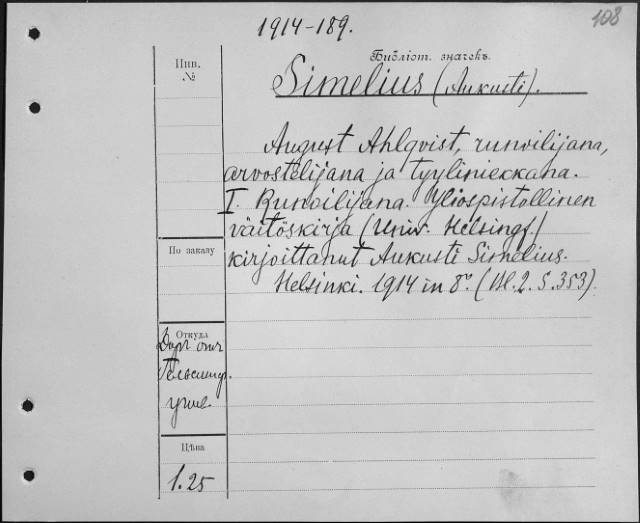 1914-189.
108
Библіот. значекъ.
Инв.
№
Simelius (Aukusti).
August Ahlqvist, runoilijana,
arvostelijana ja tyyliniekkana.
I. Runoilijana. Yliospistollinen
väitöskirja (Univ. Helsingf.)
kirjoittanut Aukusti Simelius.
Helsinki. 1914 in 8º. (II. 2. S. 353).
По заказу
Откуда
Даръ отъ
Гельсингф.
унив.
Цѣна
1.25